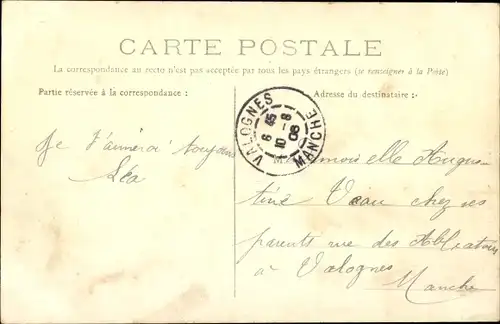 CARTE POSTALE
La correspondance au recto n'est pas acceptée par tous les pays étrangers (se renseigner à la Poste)
Partie réservée à la correspondance :
Adresse du destinataire :
VALOGNES
6 45
10 - 8
08
MANCHE
Je t'aimerai toujours
Léa
Mademoiselle Augus
tine Veau chez ses
parents rue des
à Valognes
Manche